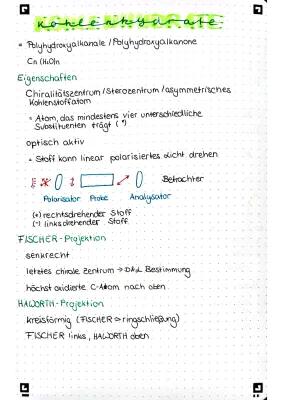 Kohlenhydrate
= Polyhydroxyalkanale / Polyhydroxyalkanone
Cn (H₂O)n
Eigenschaften
Chiralitätszentrum / Sterozentrum / asymmetrisches
Kohlenstoffatom
= Atom, das mindestens vier unterschiedliche
Substituenten trägt (*)
optisch aktiv
= Stoff kann linear polarisiertes Licht drehen
Betrachter
Polarisator Probe Analysator
(+) rechtsdrehender Stoff
(-) linksdrehender Stoff
FISCHER-Projektion
senkrecht
letztes chirale Zentrum → D & L Bestimmung
höchst oxidierte C-Atom nach oben
HAWORTH-Projektion
kreisförmig (FISCHER → ringschließung)
FISCHER links, HAWORTH oben